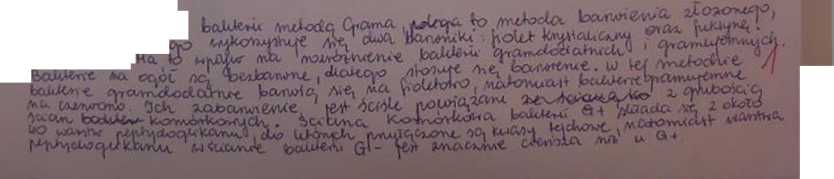 bakterii metodą Grama, polega to metoda barwienia złożonego,
ego wykorzystuje się dwa barwniki: fiolet krystaliczny oraz fuksynę.
Ma to wpływ na rozróżnienie bakterii gramdodatnich i gramujemnych.
Bakterie na ogół są bezbarwne, dlatego stosuje się barwienie. W tej metodzie 1
bakterie gramdodatnie barwią się na fioletowo, natomiast bakterie gramujemne
na czerwono. Ich zabarwienie jest ściśle powiązane z grubością
ścian komórkowych. Ściana komórkowa bakterii G+ składa się z około
40 warstw peptydoglikanu, do których przyłączone są kwasy tejchowe, natomiast warstwa
peptydoglikanu w ścianie bakterii G- jest znacznie cieńsza niż u G+